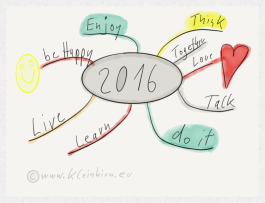 Enjoy
Think
be Happy
Together
Love
2016
Talk
Live
Learn
do it
©www.kleinhirn.eu